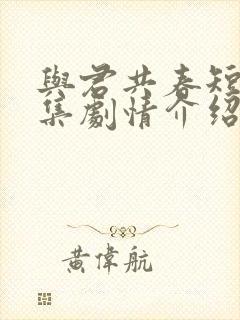 與君共春短
集劇情介紹
黃偉航